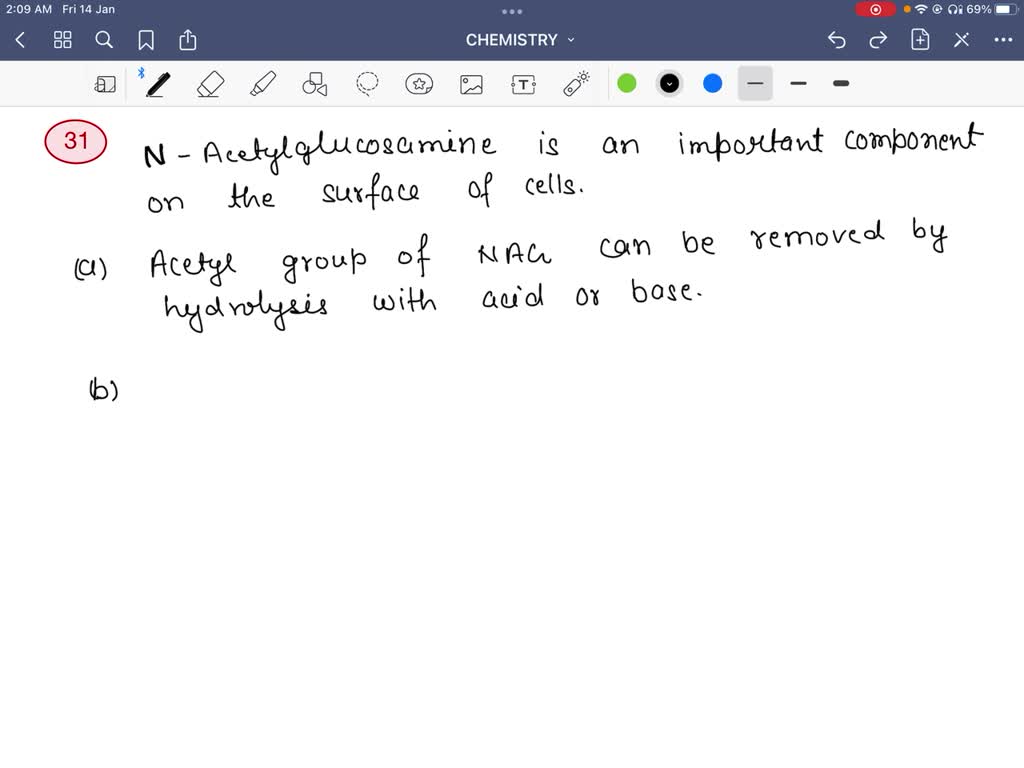 2:09 AM Fri 14 Jan
69%
CHEMISTRY
T
31
N - Acetylglucosamine is an important component
on the surface of cells.
(a) Acetyl group of NAG can be removed by
hydrolysis with acid or base.
(b)